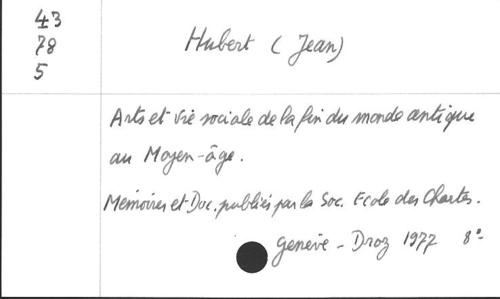 43
78
5
Hubert (Jean)
Arts et vie sociale de la fin du monde antique
au Moyen-âge.
Mémoires et Doc. publiés par la Soc. Ecole des Chartes.
Genève - Droz 1977 8°